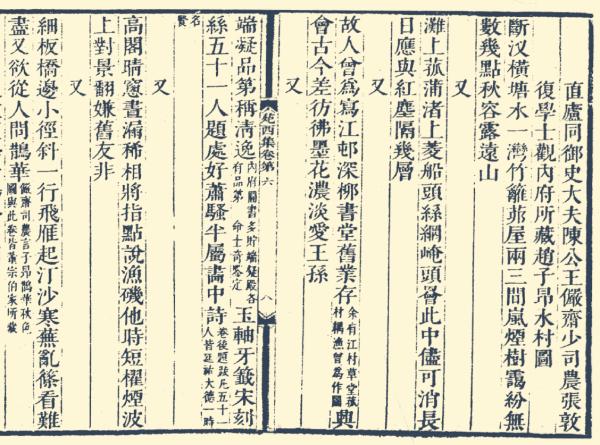 直廬同御史大夫陳公王儼齋少司農張敦
復學士觀內府所藏趙子昂水村圖
斷汊橫塘水一灣竹籬茆屋兩三間嵐煙樹靄紛無
數幾點秋容露遠山
又
灘上菰蒲渚上菱船頭絲網崦頭罾此中儘可消長
日應與紅塵隔幾層
又
故人曾爲寫江邨深柳書堂舊業存余有江村草堂
村耦漁曾爲作圖興
會古今差彷彿墨花濃淡愛王孫
又
苑西集卷第六
八
端凝品第稱淸逸內府圖書多貯端凝殿各
有品第命士奇鑒定玉軸牙籤宋刻
絲五十一人題處好蕭騷半屬畵中詩卷後題跋凡五十一
人皆延祐大德一時
名賢
又
高閣晴窻晝漏稀相將指點說漁磯他時短櫂煙波
上對景翻嫌舊友非
又
細板橋邊小徑斜一行飛雁起汀沙寒蕪亂篠看難
盡又欲從人問鵲華儼齋司農言子昂鵲華秋色
圖與此卷皆董宗伯家所藏